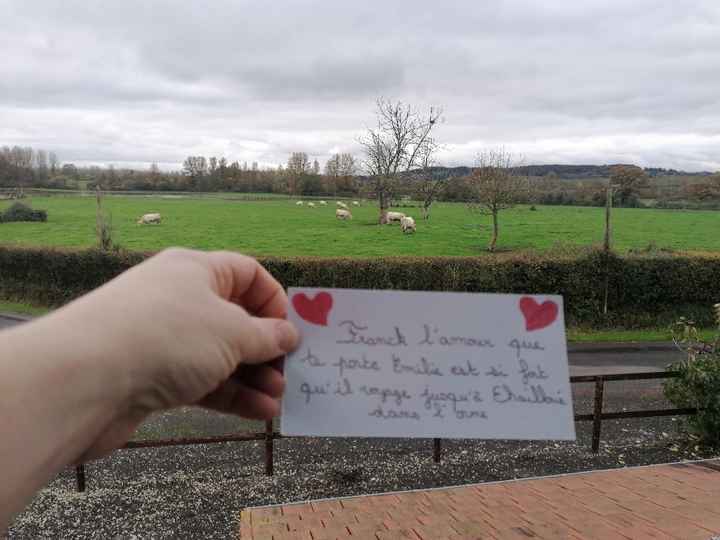 Franck l'amour que
te porte Emilie est si fort
qu'il voyage jusqu'à Ehuillbé
dans l'orne